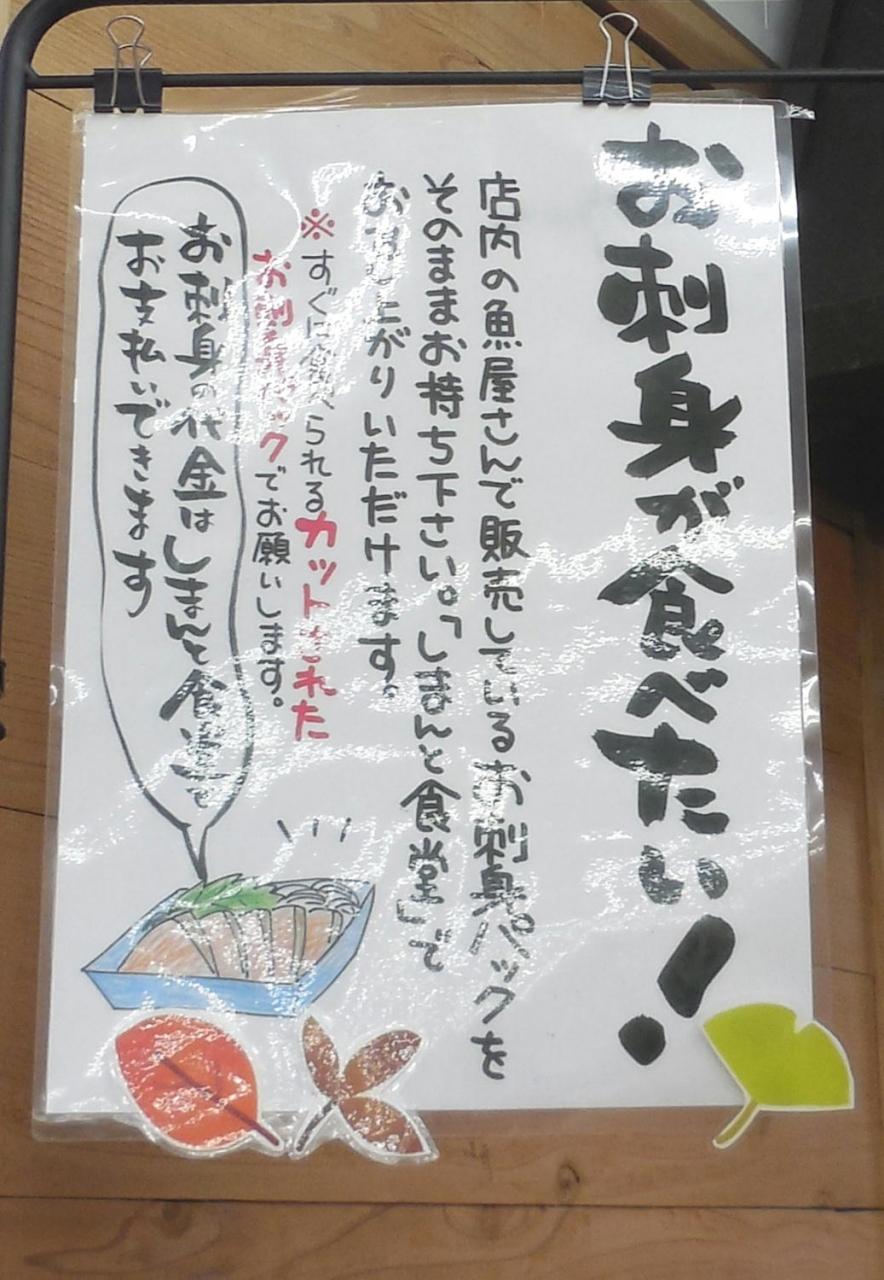 お刺身が食べたい!
店内の魚屋さんで販売しているお刺身パックを
そのままお持ち下さい。「しまんと食堂」で
お召し上がりいただけます。
※すぐに食べられるカットされた
お刺身パックでお願いします。
お刺身の代金はしまんと食堂で
お支払いできます